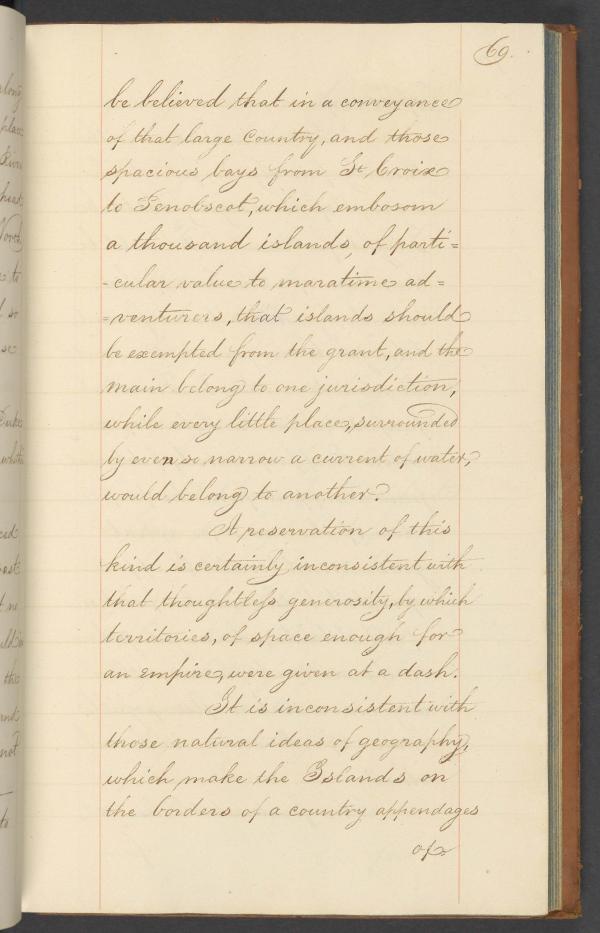 69.
be believed that in a conveyance
of that large Country, and those
spacious bays from St Croix
to Penobscot, which embosom
a thousand islands, of parti=
=cular value to maratime ad=
=venturers, that islands should
be exempted from the grant, and the
main belong to one jurisdiction,
while every little place, surrounded
by even so narrow a current of water,
would belong to another?
A reservation of this
kind is certainly inconsistent with
that thoughtless generosity, by which
territories, of space enough for
an empire, were given at a dash.
It is inconsistent with
those natural ideas of geography,
which make the Islands on
the borders of a country appendages
of